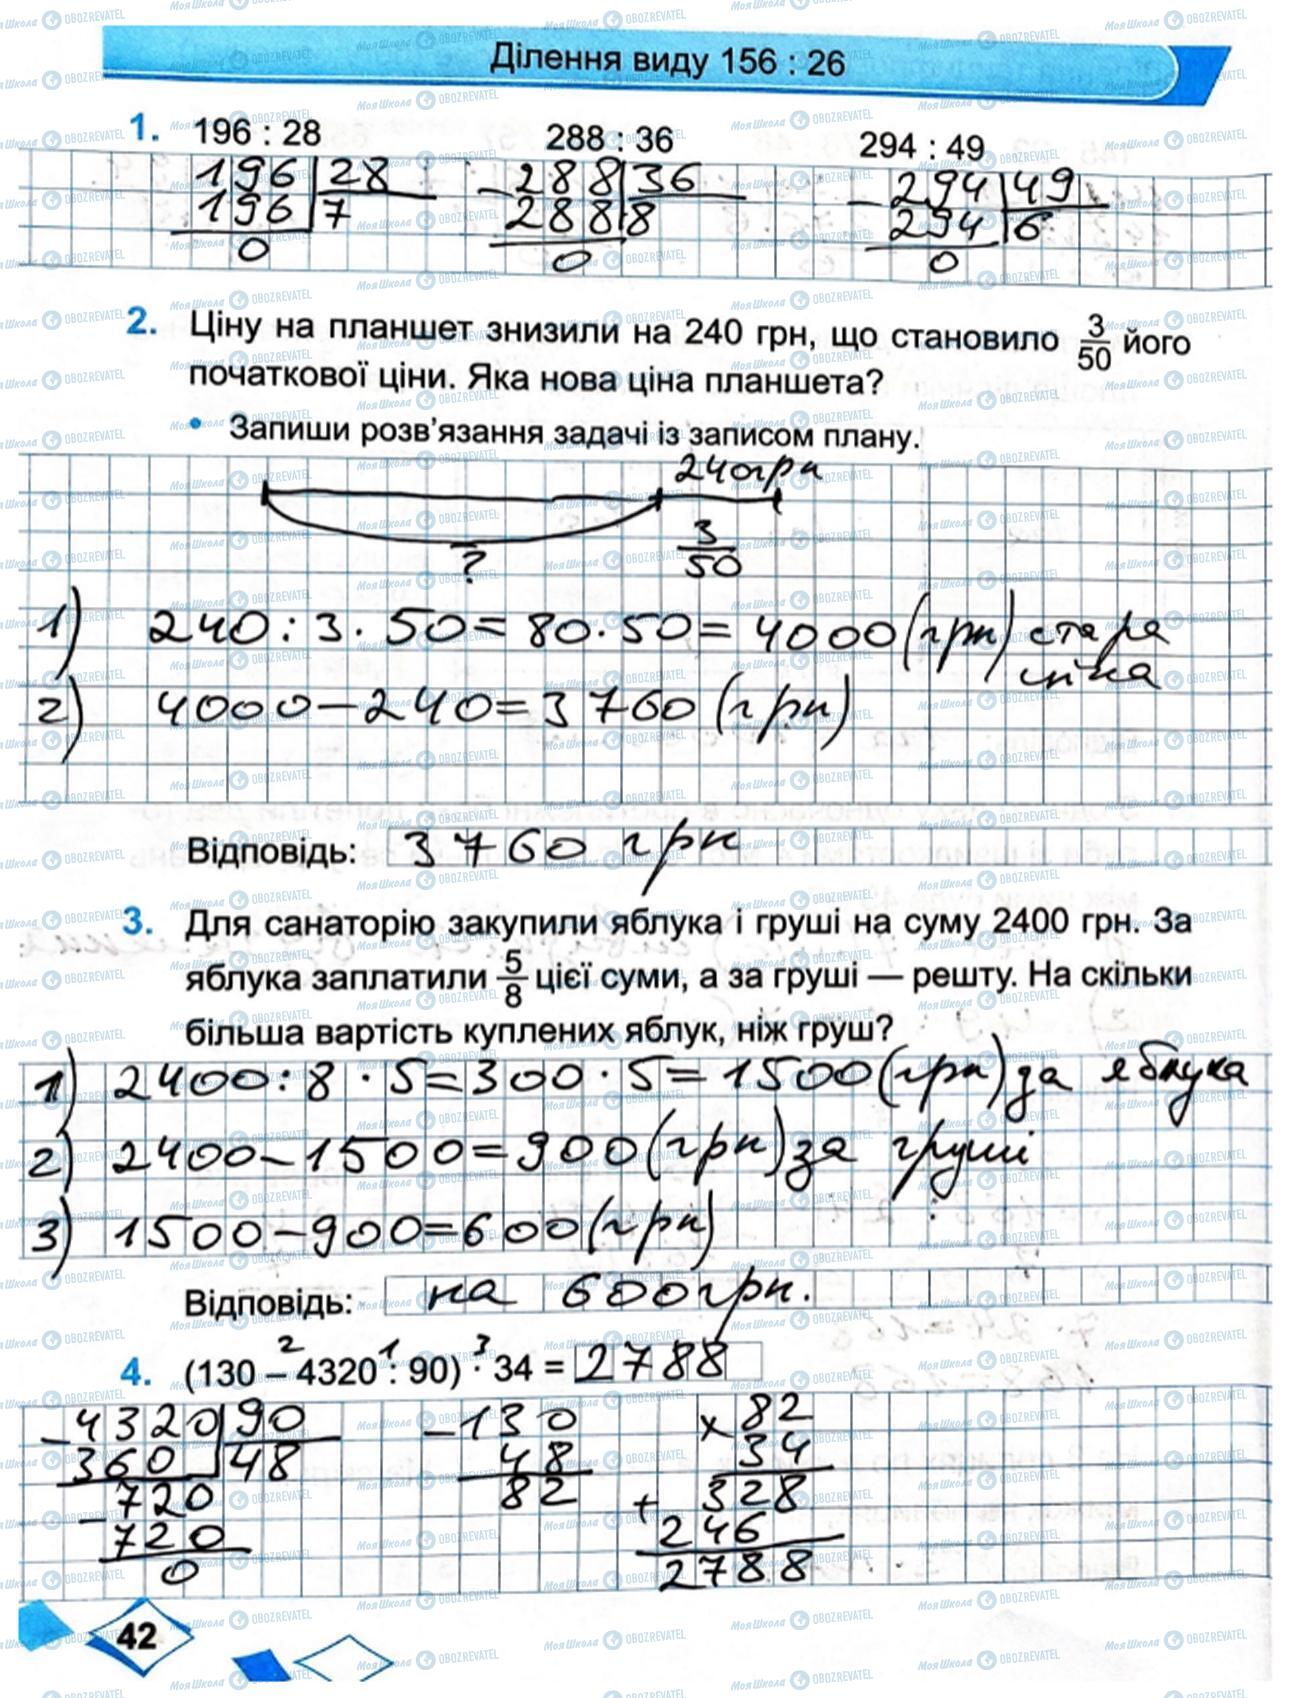 Ділення виду 156 : 26
1. 196 : 28 288 : 36 294 : 49
196 28 - 288 36 - 294 49
196 7 288 8 294 6
0 0 0
2. Ціну на планшет знизили на 240 грн, що становило 3/50 його
початкової ціни. Яка нова ціна планшета?
• Запиши розв'язання задачі із записом плану.
240грн
? 3/50
1) 240 : 3 · 50 = 80 · 50 = 4000 (грн) стара
ціна
2) 4000 – 240 = 3760 (грн)
Відповідь: 3760 грн
3. Для санаторію закупили яблука і груші на суму 2400 грн. За
яблука заплатили 5/8 цієї суми, а за груші — решту. На скільки
більша вартість куплених яблук, ніж груш?
1) 2400 : 8 · 5 = 300 · 5 = 1500 (грн) за яблука
2) 2400 – 1500 = 900 (грн) за груші
3) 1500 – 900 = 600 (грн)
Відповідь: на 600грн.
2 1 3
4. (130 – 4320 : 90) · 34 = 2788
- 4320 90 - 130 x 82
360 48 48 34
- 720 82 + 328
720 246
0 2788
42
МояШкола OBOZREVATEL